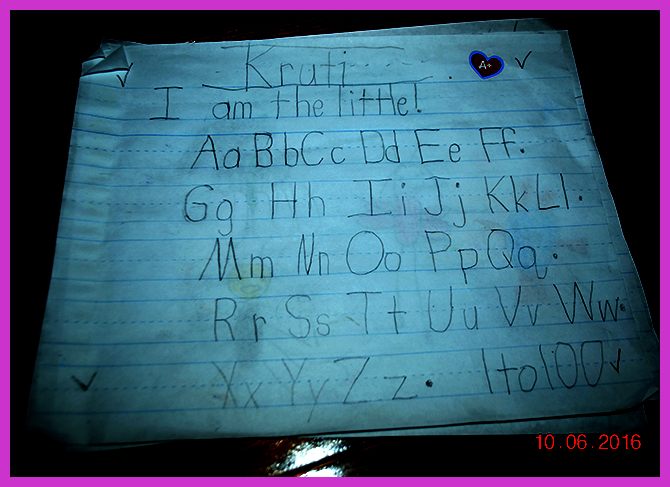 Kruti
A+
I am the little!
Aa Bb Cc Dd Ee Ff.
Gg Hh Ii Jj Kk Ll.
Mm Nn Oo Pp Qq.
Rr Ss Tt Uu Vv Ww.
Xx Yy Zz. 1to100
10.06.2016